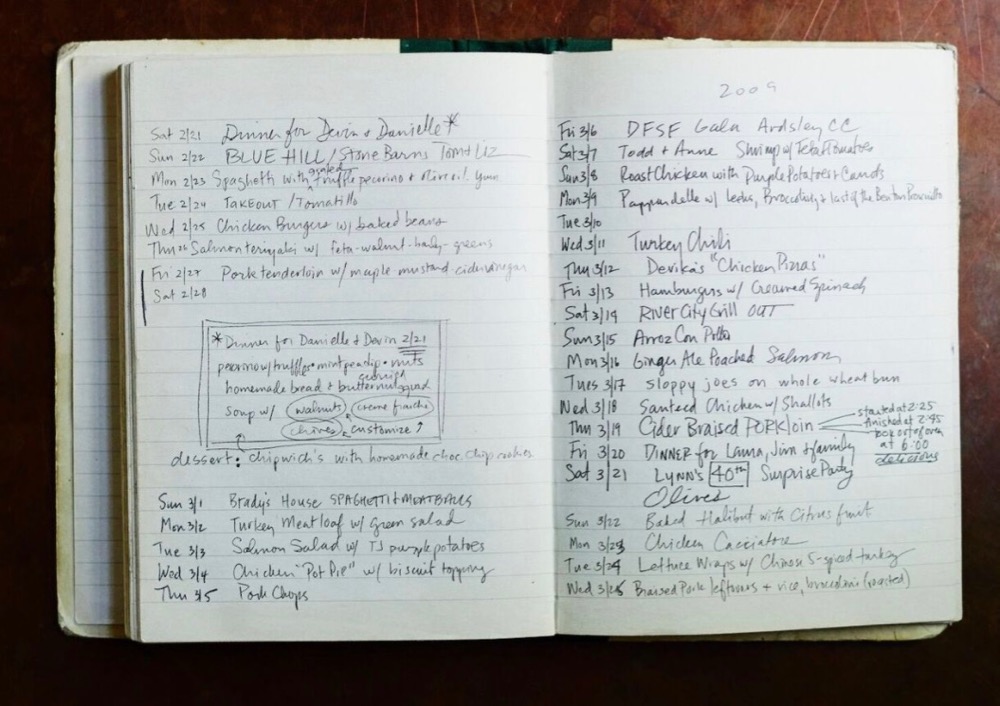 Sat 2/21 Dinner for Devin & Danielle *
Sun 2/22 BLUE HILL / Stone Barns Tom & Liz
grated
Mon 2/23 Spaghetti with truffle pecorino & olive oil. yum
Tue 2/24 TAKEOUT / Tomatillo
Wed 2/25 Chicken Burgers w/ baked beans
Thu 26 Salmon teriyaki w/ feta-walnut- -greens
Fri 2/27 Pork tenderloin w/ maple mustard cider vinegar
Sat 2/28
* Dinner for Danielle & Devin 2/21
pecorino w/ truffles • mint pea dip • nuts
homemade bread & butternut squash
Soup w/ walnuts creme fraiche
chives customize ↑
dessert: chipwich's with homemade choc. chip cookies
Sun 3/1 Brady's House SPAGHETTI & MEATBALLS
Mon 3/2 Turkey Meatloaf w/ green salad
Tue 3/3 Salmon Salad w/ TJ purple potatoes
Wed 3/4 Chicken "Pot Pie" w/ biscuit topping
Thu 3/5 Pork Chops
2009
Fri 3/6 DFSF Gala Ardsley CC
Sat 3/7 Todd + Anne Shrimp w/ Feta & Tomatoes
Sun 3/8 Roast Chicken with Purple Potatoes & Carrots
Mon 3/9 Pappardelle w/ Leeks, Broccoli & last of the Benton
Tue 3/10
Wed 3/11 Turkey Chili
Thu 3/12 Devika's "Chicken Pizzas"
Fri 3/13 Hamburgers w/ Creamed Spinach
Sat 3/14 RIVER CITY Grill OUT
Sun 3/15 Arroz Con Pollo
Mon 3/16 Ginger Ale Poached Salmon
Tues 3/17 sloppy joes on whole wheat bun
Wed 3/18 Sauteed Chicken w/ Shallots
Thu 3/19 Cider Braised PORK loin
started at 2:25
finished at 2:45
took out of oven
at 6:00
delicious
Fri 3/20 DINNER for Laura, Jim & family
Sat 3/21 LYNN'S 40th Surprise Party
Olives
Sun 3/22 Baked Halibut with Citrus fruit
Mon 3/23 Chicken Cacciatore
Tue 3/24 Lettuce Wraps w/ Chinese 5-spiced turkey
Wed 3/25 Braised Pork leftovers + rice, broccolini (roasted)